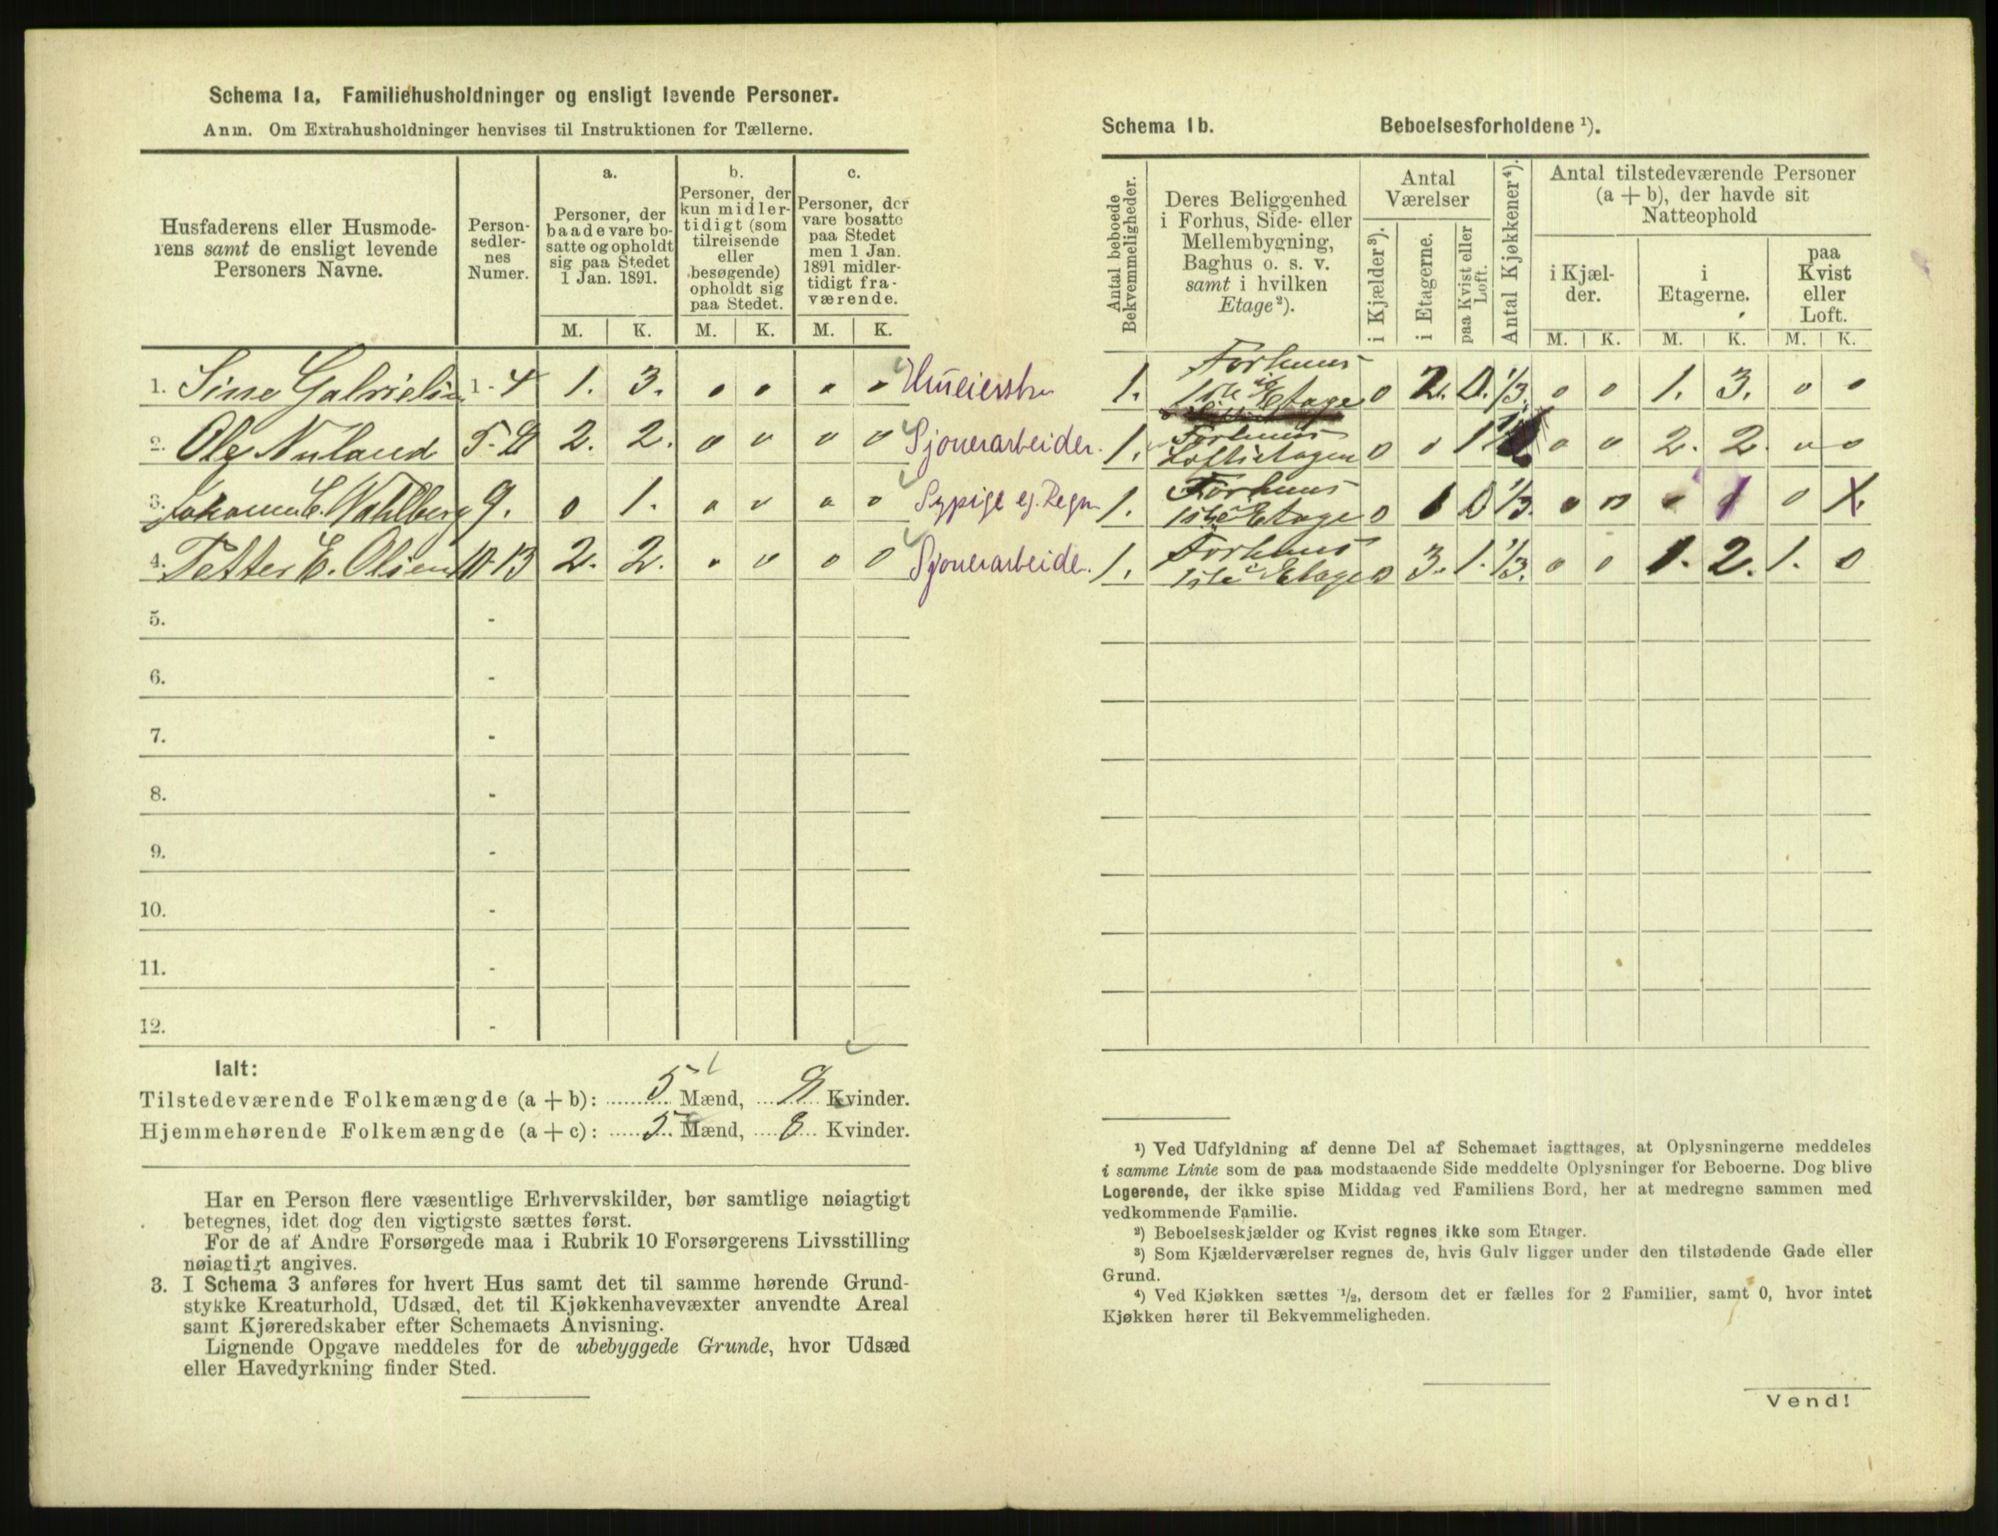 Schema 1a. Familiehusholdninger og ensligt levende Personer.
Anm. Om Extrahusholdninger henvises til Instruktionen for Tællerne.
Husfaderens eller Husmode-
rens samt de ensligt levende
Personers Navne.
Person-
sedler-
nes
Numer.
a.
Personer, der
baade vare bo-
satte og opholdt
sig paa Stedet
1 Jan. 1891.
b.
Personer, der
kun midler-
tidigt (som
tilreisende
eller
besøgende)
opholdt sig
paa Stedet.
c.
Personer, der
vare bosatte
paa Stedet
men 1 Jan.
1891 midler-
tidigt fra-
værende.
M. K. M. K. M. K.
1. Sine Gabrielsen 1 - 4 1. 3. 0 0 0 0
2. Ole Nuland 5 - 8 2. 2. 0 0 0 0 Sjouerarbeider.
3. E. Wahlberg 9. 0 1. 0 0 0 0 Sypige
4. Petter E. Olsen 10-13 2. 2. 0 0 0 0 Sjouerarbeide.
5. -
6. -
7. -
8. -
9. -
10. -
11. -
12. -
Ialt:
Tilstedeværende Folkemængde (a + b): 5 Mænd, 8 Kvinder.
Hjemmehørende Folkemængde (a + c): 5 Mænd, 8 Kvinder.
Har en Person flere væsentlige Erhvervskilder, bør samtlige nøiagtigt
betegnes, idet dog den vigtigste sættes først.
For de af Andre Forsørgede maa i Rubrik 10 Forsørgerens Livsstilling
nøiagtigt angives.
3. I Schema 3 anføres for hvert Hus samt det til samme hørende Grund-
stykke Kreaturhold, Udsæd, det til Kjøkkenhavevæxter anvendte Areal
samt Kjøreredskaber efter Schemaets Anvisning.
Lignende Opgave meddeles for de ubebyggede Grunde, hvor Udsæd
eller Havedyrkning finder Sted.
Schema 1b. Beboelsesforholdene ¹).
Antal beboede
Bekvemmeligheder.
Deres Beliggenhed
i Forhus, Side- eller
Mellembygning,
Baghus o. s. v.
samt i hvilken
Etage²).
Antal
Værelser
i Kjælder³).
i Etagerne.
paa Kvist eller
Loft.
Antal Kjøkkener⁴).
Antal tilstedeværende Personer
(a + b), der havde sit
Natteophold
i Kjæl-
der.
i
Etagerne.
paa
Kvist
eller
Loft.
M. K. M. K. M. K.
1. Forhuus
1ste Etage 0 2. 0. 1/3. 0 0 1. 3. 0 0
1. Forhuus
Loftietagen 0 0 1 0 0 2. 2. 0 0
1. Forhuus
1ste Etage 0 1 0 1/3. 0 0 1 0
1. Forhuus
1ste Etage 0 3. 1. 1/3. 0 0 1. 2. 1. 0
¹) Ved Udfyldning af denne Del af Schemaet iagttages, at Oplysningerne meddeles
i samme Linie som de paa modstaaende Side meddelte Oplysninger for Beboerne. Dog blive
Logerende, der ikke spise Middag ved Familiens Bord, her at medregne sammen med
vedkommende Familie.
²) Beboelseskjælder og Kvist regnes ikke som Etager.
³) Som Kjælderværelser regnes de, hvis Gulv ligger under den tilstødende Gade eller
Grund.
⁴) Ved Kjøkken sættes ¹/₂, dersom det er fælles for 2 Familier, samt 0, hvor intet
Kjøkken hører til Bekvemmeligheden.
Vend!